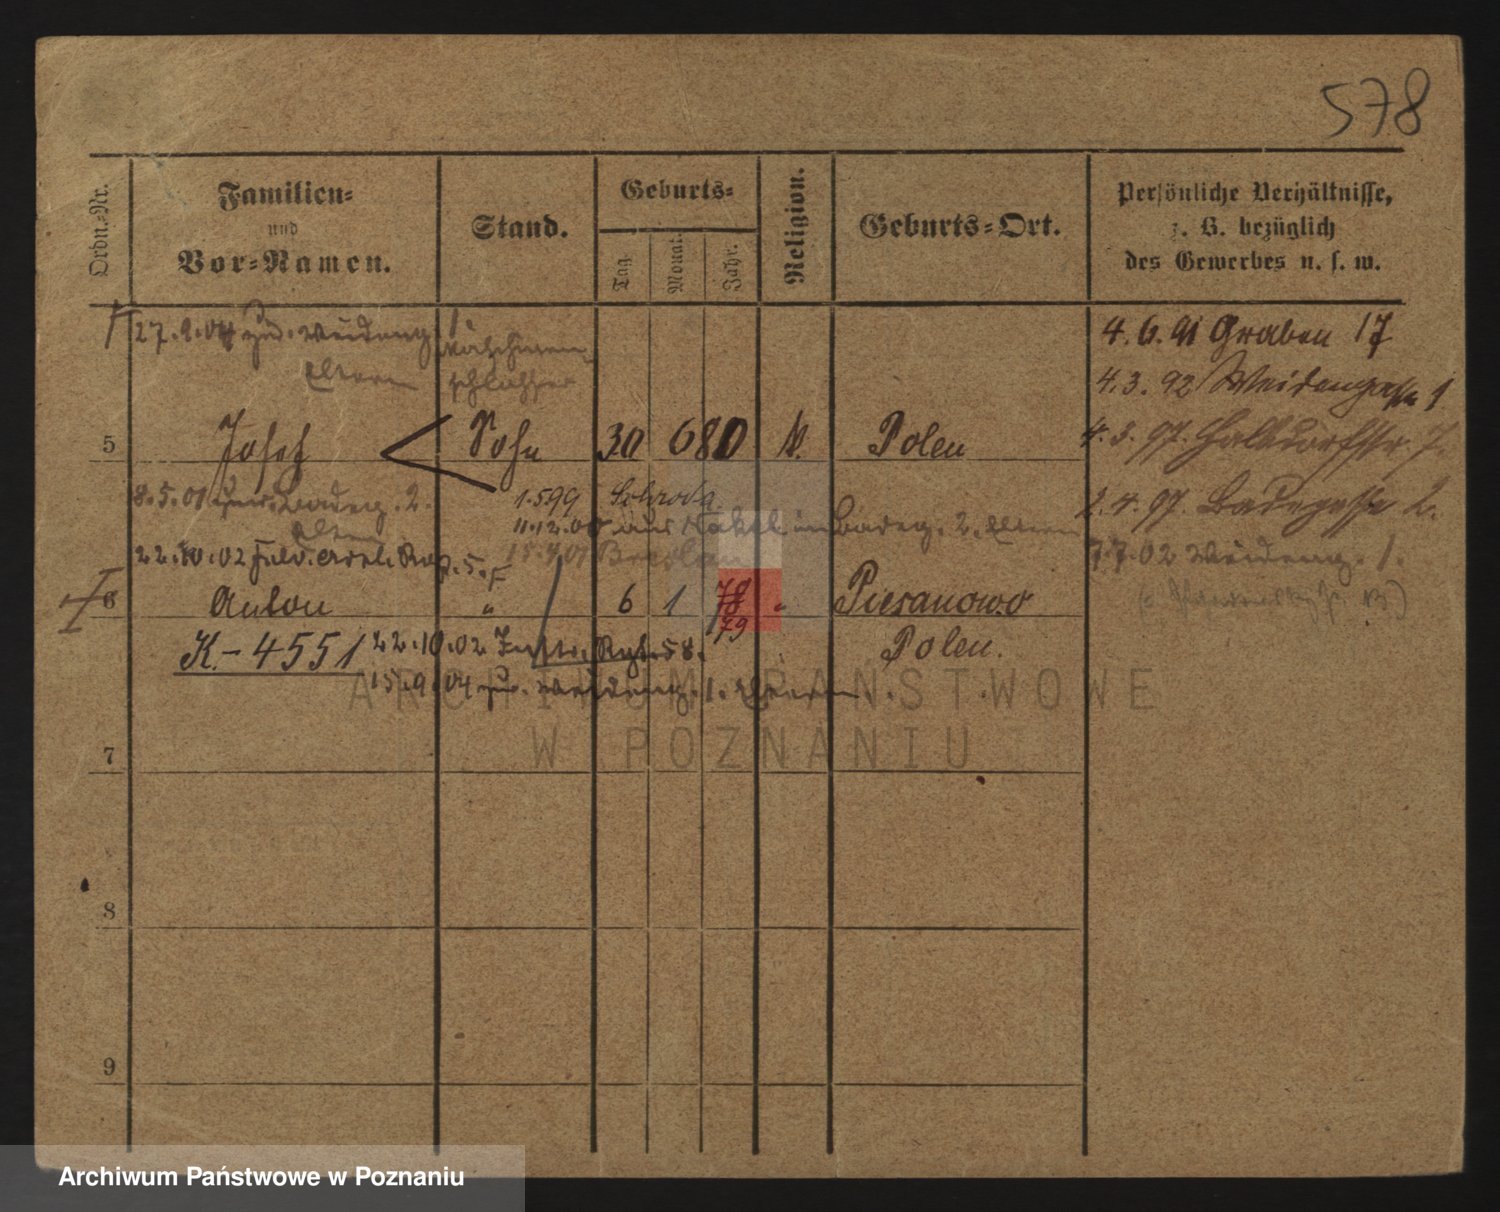 578
Ordn.-Nr.
Familien-
und
Vor-Namen.
Stand.
Geburts-
Tag.
Monat.
Jahr.
Religion.
Geburts-Ort.
Persönliche Verhältnisse,
z. B. bezüglich
des Gewerbes u. s. w.
27.9.04
Eltern
4.6.91 Graben 17
4.3.92 Weidengasse 1
5 Josef Sohn 30 6 80 k. Polen
4.3.97. Halbdorfstr. 7.
8.5.01 Badeg. 2. 1.5 99 Schroda
2.4.97. Badegasse 2.
Eltern 11.12.00 aus Nakel in Badeg. 2. Eltern
22.10.02 15.4 01 Breslau
7.7.02 Weideng. 1.
6 Anton " 6 1 78 79 " Piersanowo
Polen.
K.-4551 22.10.02 Inftr. Rgt. 58.
15.9.04 Weideng. 1. Eltern.
ARCHIWUM PAŃSTWOWE
W POZNANIU
7
8
9
Archiwum Państwowe w Poznaniu